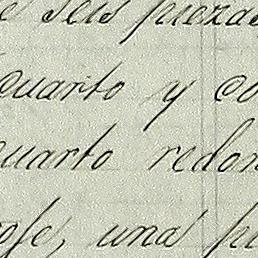 e seis piezas
cuarto y co
cuarto redon
ose, una pi